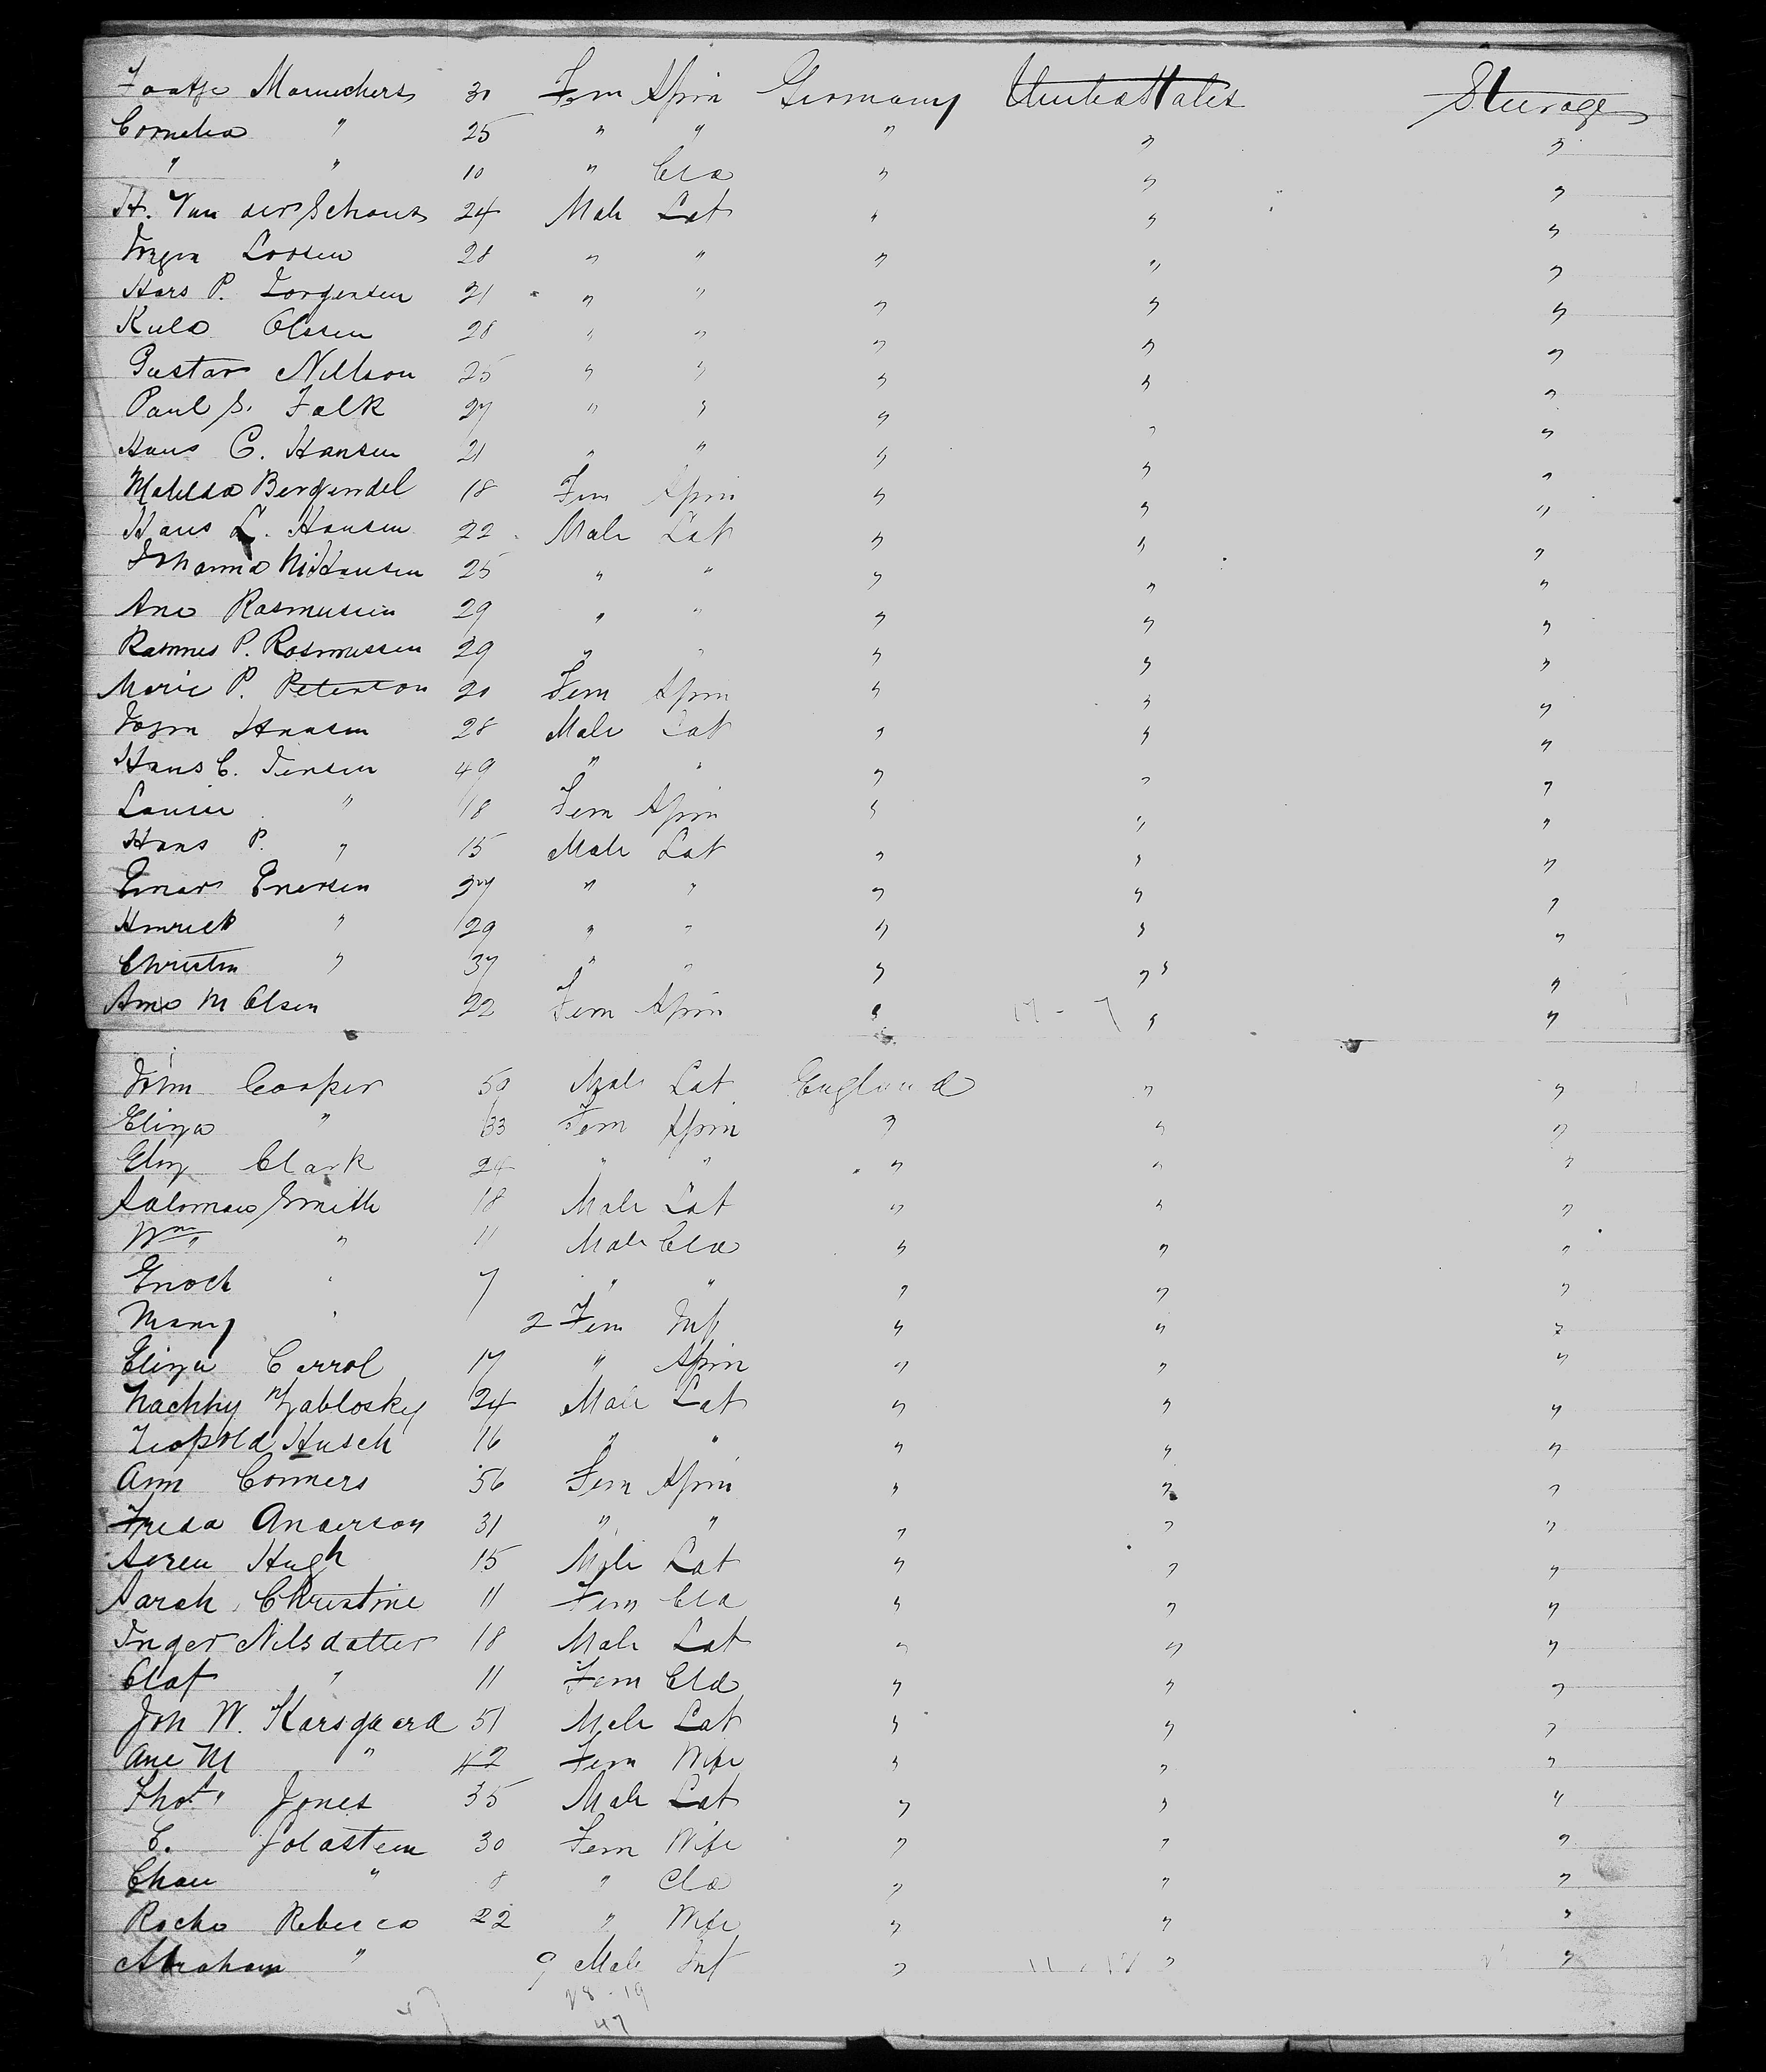 Marie P. Peterson 20 Fem Spin "
Cornelia " 25 " " " " "
" " 10 " Cld " " "
H. Van der Schouts 24 Male Lab " " "
Larsen 28 " " " " "
Hars P. Jorgensen 21 " " " " "
Olssen 28 " " " " "
Gustav Nillson 25 " " " " "
Paul S. Falk 27 " " " " "
Hans C. Hansen 21 " " " " "
Matilda Bergendel 18 Fem Spin " " "
Hans L. Hansen 22 Male Lab " " "
Johanna Hansen 25 " " " " "
Ane Rasmussen 29 " " " " "
Rasmus P. Rasmussen 29 " " " " "
Marie P. Peterson 20 Fem Spin " " "
John Hansen 28 Male Lab " " "
Hans C. Jensen 49 " " " " "
Louise " 18 Fem Spin " " "
Hans P. " 15 Male Lab " " "
Einar Enersen 27 " " " " "
Hinrich " 29 " " " " "
Christen " 37 " " " " "
Ane M Olsen 22 Fem Spin " 17 - 7 " "
John Cooper 50 Male Lab England " "
Eliza " 33 Fem Spin " " "
Eliz Clark 24 " " " " "
Salomon Smith 18 Male Lab " " "
Wm " 11 Male Cld " " "
Enoch " 7 " " " " "
Mary " 2 Fem Inf " " "
Eliza Carrol 17 " Spin " " "
Nachhy Zablosky 24 Male Lab " " "
Leopold Husch 16 " " " " "
Ann Conners 56 Fem Spin " " "
Freda Anderson 31 " " " " "
Soren Hugh 15 Male Lab " " "
Sarah Christine 11 Fem Cld " " "
Inger Nilsdatter 18 Male Lab " " "
Olaf " 11 Fem Cld " " "
Joh W. Karsgaard 51 Male Lab " " "
Ane M " 42 Fem Wife " " "
Thos. Jones 35 Male Lab " " "
C. Goldstein 30 Fem Wife " " "
Chan " 8 " Cld " " "
Rocho Rebecca 22 " Wife " " "
Abraham " 9 Male Inf " 11 - 12 " "
28 - 19
47 47